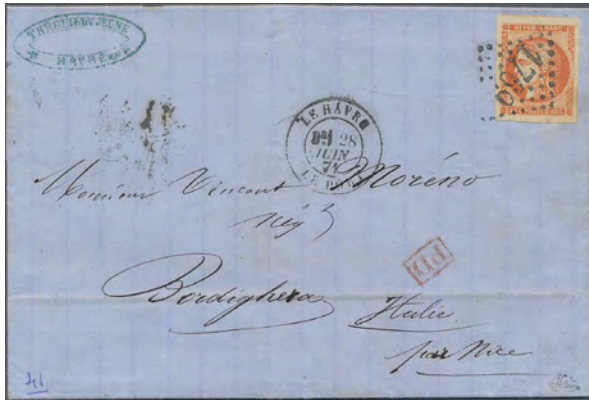 JEUNE
HAVRE
1769
REPUB. FRANC.
LE HAVRE
28
JUIN
71
LE
Monsieur Vincent Moréno
Nég
Bordighera
Italie
par Nice
PD